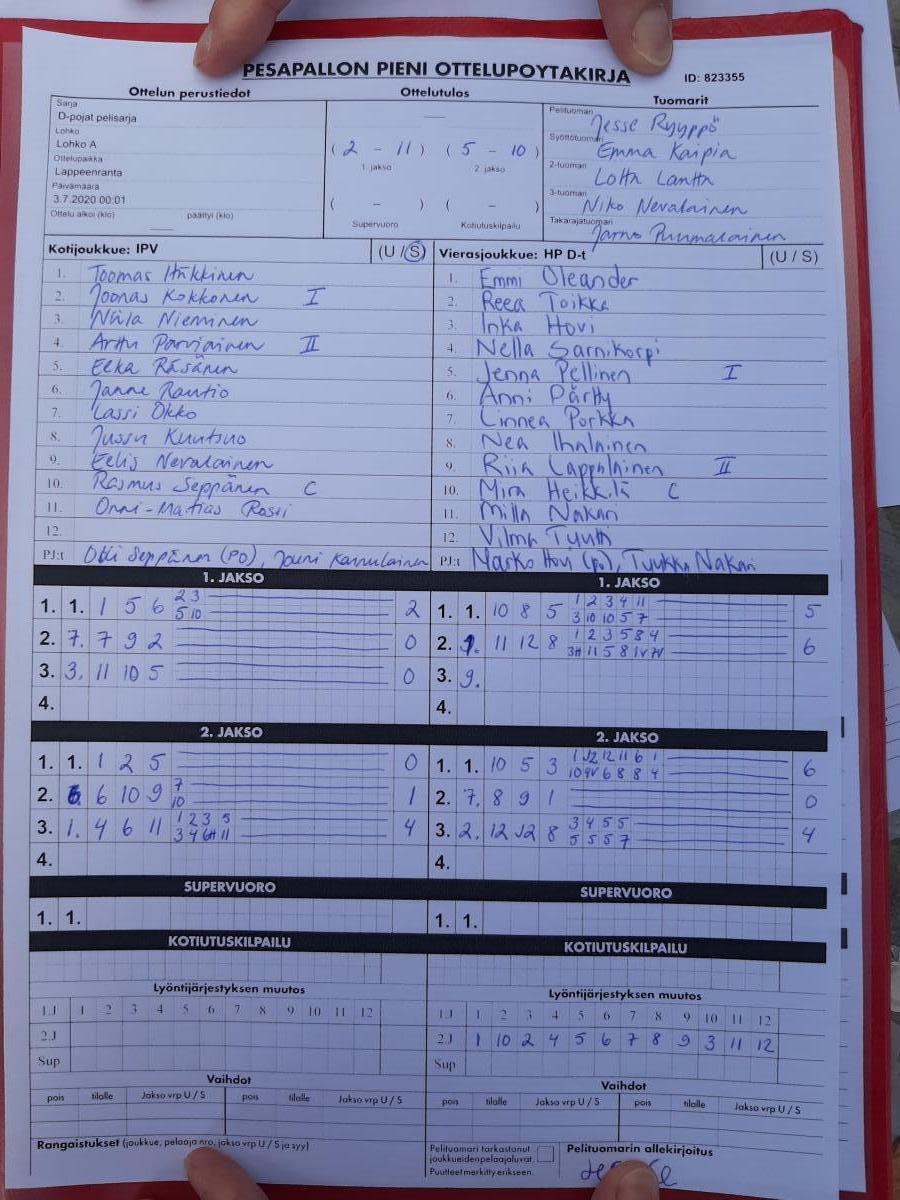 PESAPALLON PIENI OTTELUPOYTAKIRJA
ID: 823355
Ottelun perustiedot
Sarja
D-pojat pelisarja
Lohko
Lohko A
Ottelupaikka
Lappeenranta
Päivämäärä
3.7.2020 00:01
Ottelu alkoi (klo) päättyi (klo)
Ottelutulos
( 2 - 11 ) ( 5 - 10 )
1. jakso 2. jakso
( - ) ( - )
Supervuoro Kotiutuskilpailu
Tuomarit
Pelituomari
Jesse Ryyppö
Syöttötuomari
Emma Kaipia
2-tuomari
Lotta Lantta
3-tuomari
Niko Nevalainen
Takarajatuomari
Jarno Purmalainen
Kotijoukkue: IPV (U / S)
1. Toomas Häkkinen
2. Joonas Kokkonen I
3. Niila Nieminen
4. Arttu Parviainen II
5. Eeka Räsänen
6. Janne Rautio
7. Lassi Okko
8. Jussu Kuutsuo
9. Eelis Nevalainen
10. Rasmus Seppänen C
11. Onni-Matias Rossi
12.
PJ:t Olli Seppänen (PO), Jouni Kannulainen
Vierasjoukkue: HP D-t (U / S)
1. Emmi Oleander
2. Reea Toikka
3. Inka Hovi
4. Nella Sarnikorpi
5. Jenna Pellinen I
6. Anni Pärtty
7. Linnea Porkka
8. Nea Ihalainen
9. Riia Lappalainen II
10. Mira Heikkilä C
11. Milla Nakari
12. Vilma Tyuth
PJ:t Marko Hovi (po), Tuukka Nakari
1. JAKSO
1. 1. 1 5 6 2 3 2
5 10
2. 7. 7 9 2 0
3. 3. 11 10 5 0
4.
1. JAKSO
1. 1. 10 8 5 1 2 3 4 11 5
3 10 10 5 7
2. 9. 11 12 8 1 2 3 5 8 4 6
11 5 8
3. 9.
4.
2. JAKSO
1. 1. 1 2 5 0
2. 6. 6 10 9 7 1
10
3. 1. 4 6 11 1 2 3 5 4
3 4 6H 11
4.
2. JAKSO
1. 1. 10 5 3 1 J2 12 11 6 1 6
10 4V 6 8 8 4
2. 7. 8 9 1 0
3. 2. 12 J2 8 3 4 5 5 4
5 5 5 7
4.
SUPERVUORO
1. 1.
SUPERVUORO
1. 1.
KOTIUTUSKILPAILU
KOTIUTUSKILPAILU
Lyöntijärjestyksen muutos
1.J 1 2 3 4 5 6 7 8 9 10 11 12
2.J
Sup
Lyöntijärjestyksen muutos
1.J 1 2 3 4 5 6 7 8 9 10 11 12
2.J 1 10 2 4 5 6 7 8 9 3 11 12
Sup
Vaihdot
pois tilalle Jakso vrp U / S pois tilalle Jakso vrp U / S
Vaihdot
pois tilalle Jakso vrp U / S pois tilalle Jakso vrp U / S
Rangaistukset (joukkue, pelaaja nro, jakso vrp U / S ja syy)
Pelituomari tarkastanut
joukkueidenpelaajaluvat.
Puutteet merkitty erikseen.
Pelituomarin allekirjoitus